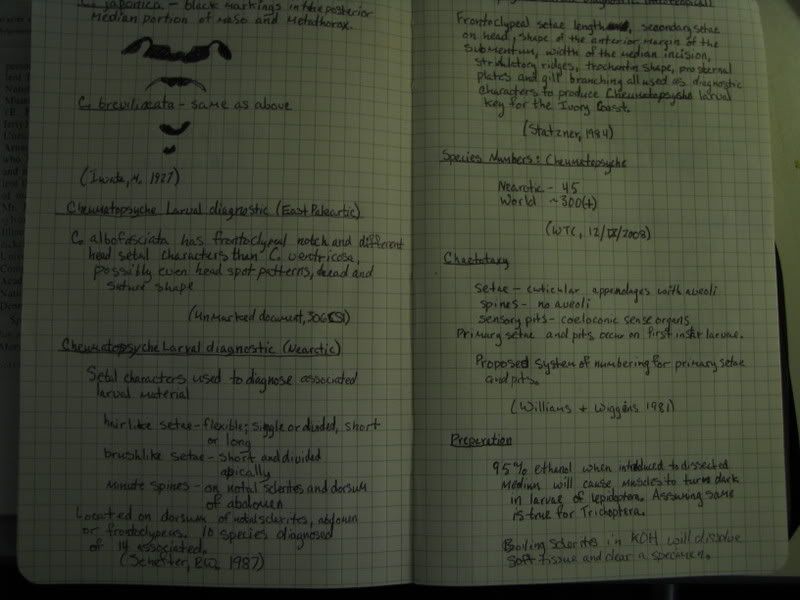 C. japonica - black markings in the posterior
Median portion of Meso and Metathorax.
C. brevilineata - same as above
(Iwata, M. 1927)
Cheumatopsyche Larval diagnostic (East Paleartic)
C. albofasciata has frontoclypeal notch and different
head setal characters than C. ventricosa,
possibly even head spot patterns, head and
suture shape
(Unmarked document,
Cheumatopsyche Larval diagnostic (Nearctic)
Setal characters used to diagnose associated
larval material
hairlike setae - flexible; single or divided, short
or long
brushlike setae - short and divided
apically
minute spines - on notal sclerites and dorsum
of abdomen
Located on dorsum of notal sclerites, abdomen
or frontoclypeus. 10 species diagnosed
of 14 associated.
(Schefter, P.W. 1987)
Frontoclypeal setae length, secondary setae
on head, shape of the anterior margin of the
submentum, width of the median incision,
stridulatory ridges, trochantin shape, prosternal
plates and gill branching all used as diagnostic
characters to produce Cheumatopsyche larval
key for the Ivory Coast.
(Statzner, 1984)
Species Numbers: Cheumatopsyche
Nearctic - 45
World ~300(+)
(WTC, 12/IX/2008)
Chaetotaxy
setae - cuticular appendages with aveoli
spines - no aveoli
sensory pits - coeloconic sense organs
Primary setae and pits occur on first instar larvae.
Proposed system of numbering for primary setae
and pits.
(Williams + Wiggins 1981)
Preparation
95% ethanol when introduced to dissected
Medium will cause muscles to turn dark
in larvae of lepidoptera. Assuming same
is true for Trichoptera.
Boiling sclerites in KOH will dissolve
soft tissue and clear a specimen.